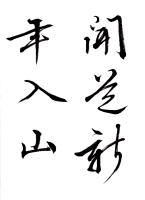 聞道新
年入山